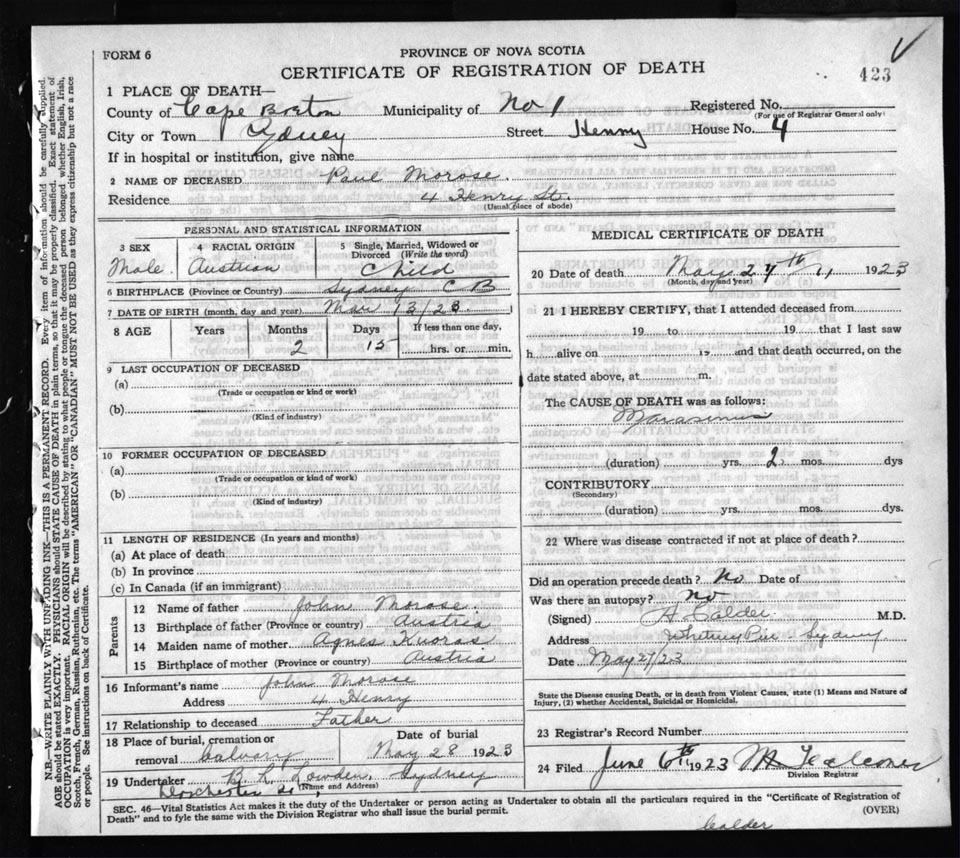 FORM 6
PROVINCE OF NOVA SCOTIA
CERTIFICATE OF REGISTRATION OF DEATH
423
1 PLACE OF DEATH—
County of Cape Breton Municipality of No 1 Registered No.
(For use of Registrar General only)
City or Town Sydney Street Henry House No. 4
If in hospital or institution, give name
2 NAME OF DECEASED Paul Morose.
Residence 4 Henry St.
(Usual place of abode)
PERSONAL AND STATISTICAL INFORMATION
3 SEX 4 RACIAL ORIGIN 5 Single, Married, Widowed or Divorced (Write the word)
Male. Austrian Child
6 BIRTHPLACE (Province or Country) Sydney C B
7 DATE OF BIRTH (month, day and year) Mar 13/23
8 AGE Years Months Days If less than one day,
2 15 hrs. or min.
9 LAST OCCUPATION OF DECEASED
(a)
(Trade or occupation or kind or work)
(b)
(Kind of industry)
10 FORMER OCCUPATION OF DECEASED
(a)
(Trade or occupation or kind or work)
(b)
(Kind of industry)
11 LENGTH OF RESIDENCE (In years and months)
(a) At place of death
(b) In province
(c) In Canada (if an immigrant)
Parents
12 Name of father John Morose.
13 Birthplace of father (Province or country) Austria
14 Maiden name of mother Agnes
15 Birthplace of mother (Province or country) Austria
16 Informant's name John Morose
Address 4 Henry
17 Relationship to deceased Father
18 Place of burial, cremation or Date of burial
removal Calvary May 28 1923
19 Undertaker B. L. Lowden, Sydney
(Name and Address)
Dorchester St.
MEDICAL CERTIFICATE OF DEATH
20 Date of death May 27th 1923
(Month, day and year)
21 I HEREBY CERTIFY, that I attended deceased from
19 to 19 that I last saw
h alive on 19 and that death occurred, on the
date stated above, at m.
The CAUSE OF DEATH was as follows:
Marasmus
(duration) yrs. 2 mos. dys
CONTRIBUTORY
(Secondary)
(duration) yrs. mos. dys.
22 Where was disease contracted if not at place of death?
Did an operation precede death? No Date of
Was there an autopsy? No
(Signed) A. Calder. M.D.
Address Whitney Pier Sydney
Date May 27/23
State the Disease causing Death, or in death from Violent Causes, state (1) Means and Nature of
Injury, (2) whether Accidental, Suicidal or Homicidal.
23 Registrar's Record Number
24 Filed June 6th 1923
Division Registrar
SEC. 46—Vital Statistics Act makes it the duty of the Undertaker or person acting as Undertaker to obtain all the particulars required in the "Certificate of Registration of
Death" and to fyle the same with the Division Registrar who shall issue the burial permit.
(OVER)
Calder
N.B.—WRITE PLAINLY WITH UNFADING INK—THIS IS A PERMANENT RECORD. Every item of information should be carefully supplied.
AGE should be stated EXACTLY. PHYSICIANS should STATE CAUSE OF DEATH in plain terms, so that it may be properly classified. Exact statement of
OCCUPATION is very important. RACIAL ORIGIN will be described by stating to what people or tongue the deceased person belonged whether English, Irish,
Scotch, French, German, Russian, Ruthenian, etc. The terms "AMERICAN" OR "CANADIAN" MUST NOT BE USED as they express citizenship but not a race
or people. See instructions on back of Certificate.